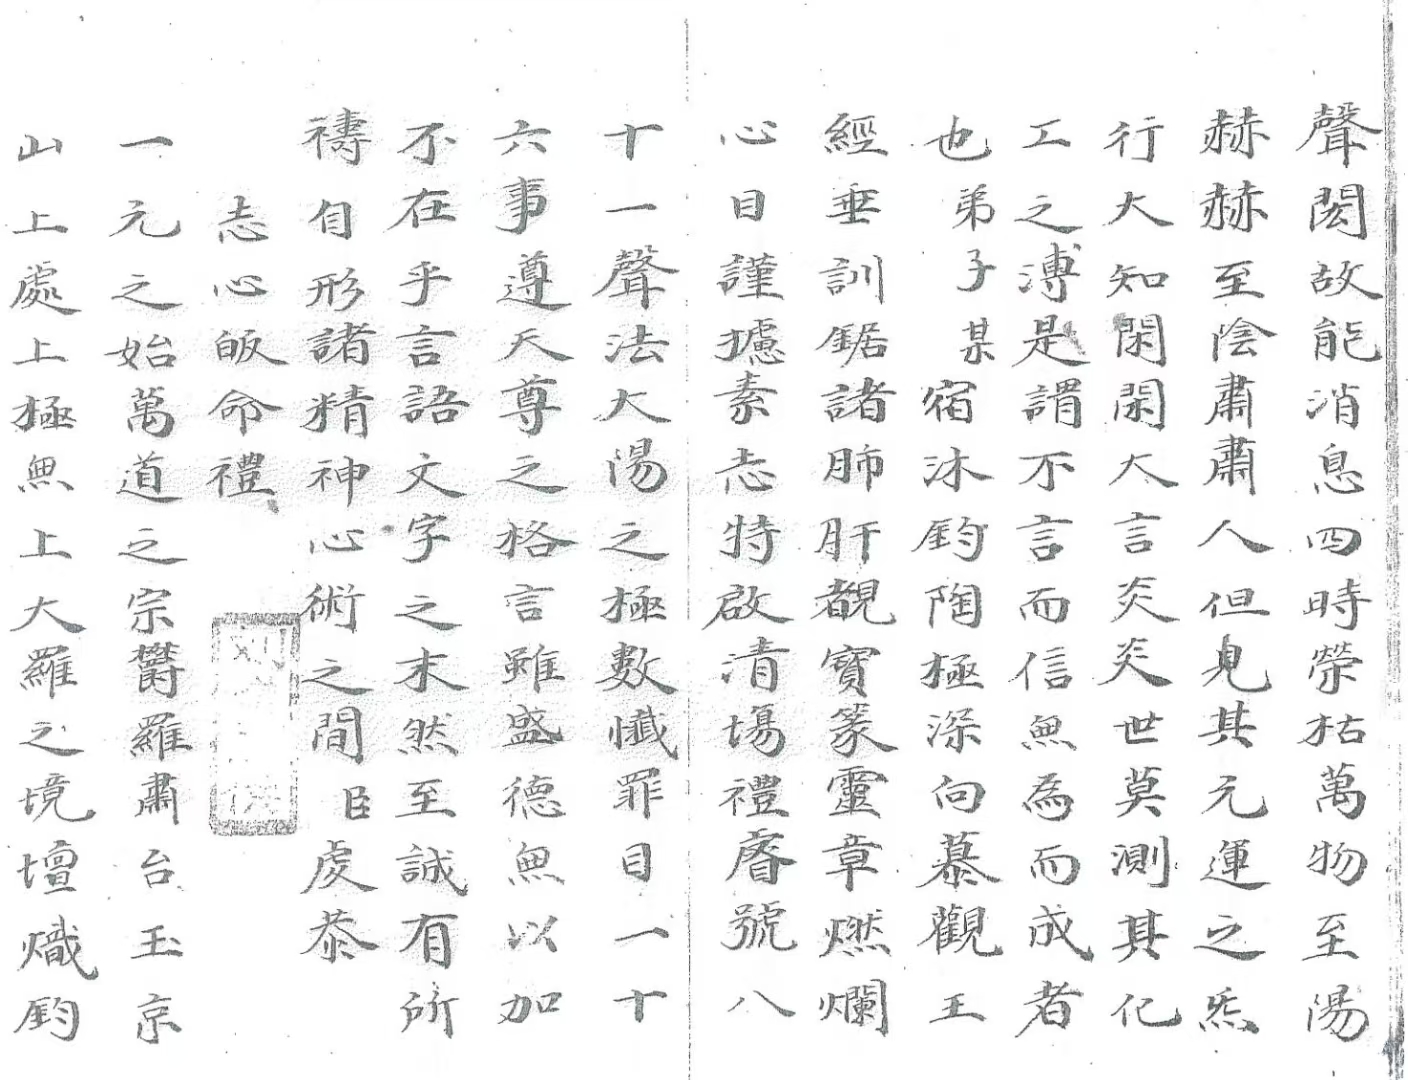 聲閎故能消息四時榮枯萬物至陽
赫赫至陰肅肅人但見其元運之炁
行大知閑閑大言炎炎世莫測其化
工之溥是謂不言而信無為而成者
也弟子某宿沐鈞陶極深向慕觀玉
經垂訓鋸諸肺肝覩寳篆靈章燃爛
心目謹攄素志特啟清場禮睿號八
十一聲法大陽之極數懺罪目一十
六事遵天尊之格言雖盛德無以加
不在乎言語文字之末然至誠有所
禱自形諸精神心術之間臣虔恭
志心皈命禮
一元之始萬道之宗欝羅肅台玉京
山上處上極無上大羅之境壇熾鈞